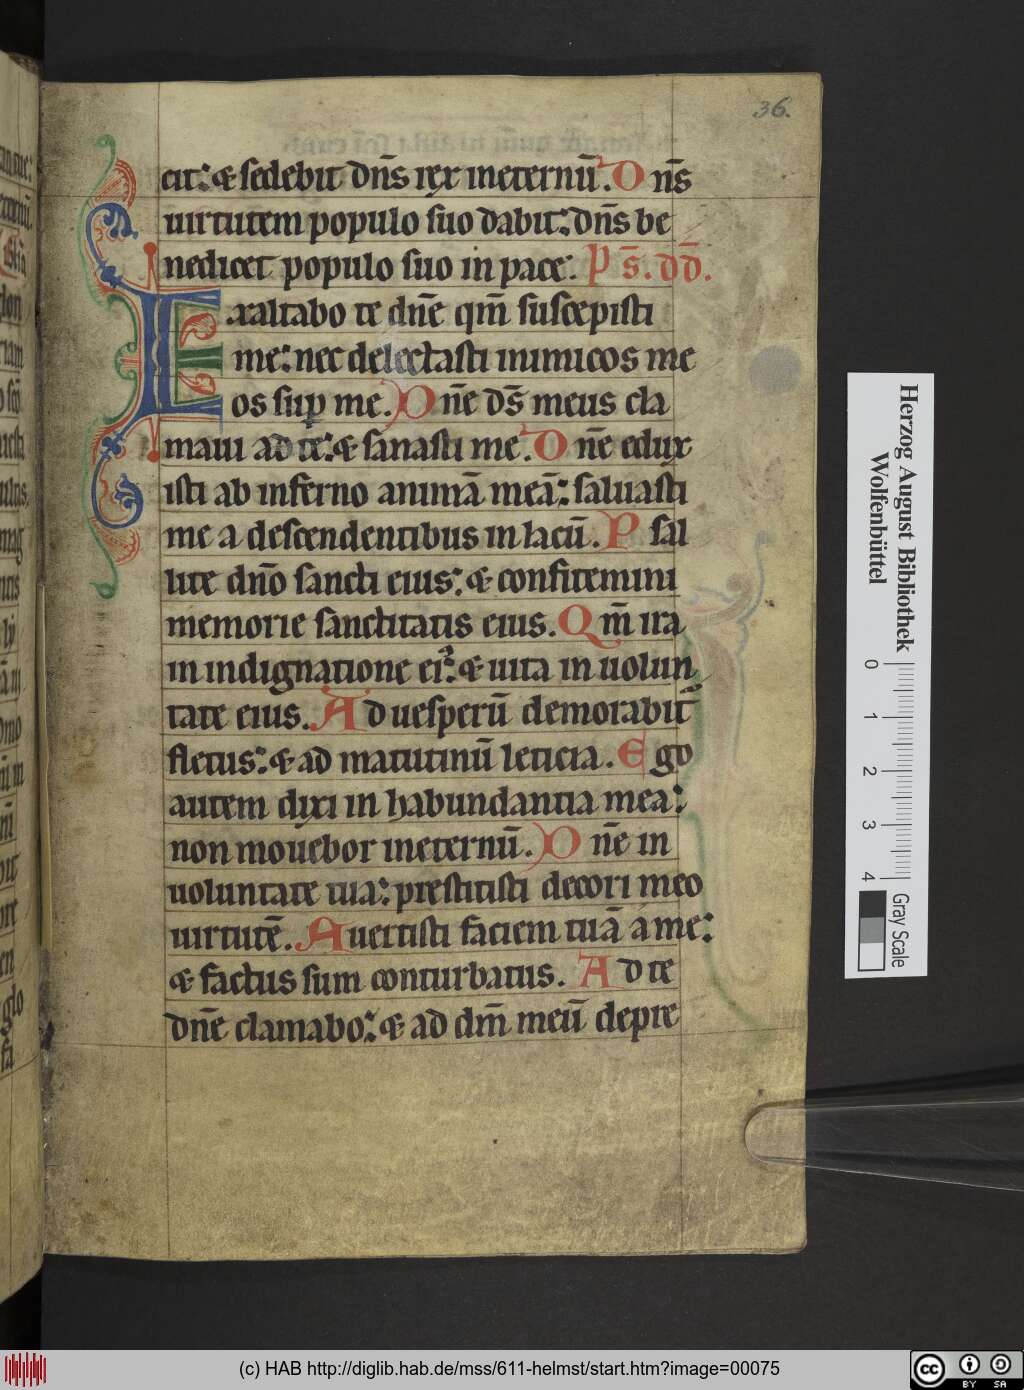 36.
cit: & sedebit dn̄s rex ineternū. Dn̄s
uirtutem populo suo dabit: dn̄s be
nedicet populo suo in pace: Ps̄. dd̄.
Exaltabo te dn̄e qm̄ suscepisti
me: nec delectasti inimicos me
os suꝑ me. Dn̄e ds̄ meus cla
maui ad te: & sanasti me. Dn̄e edux
isti ab inferno animā meā: saluasti
me a descendentibus in lacū. Psal
lite dn̄o sancti eius: & confitemini
memorie sanctitatis eius. Qm̄ ira
in indignatione ei᾿: & uita in uolun
tate eius. Ad uesperū demorabit᾿
fletus: & ad matutinū leticia. Ego
autem dixi in habundantia mea:
non mouebor ineternū. Dn̄e in
uoluntate tua: prestitisti decori meo
uirtutē. Auertisti faciem tuā a me:
& factus sum conturbatus. Ad te
dn̄e clamabo: & ad dm̄ meū depre
Herzog August Bibliothek
Wolfenbüttel
0 1 2 3 4
Gray Scale
(c) HAB http://diglib.hab.de/mss/611-helmst/start.htm?image=00075
cc BY SA